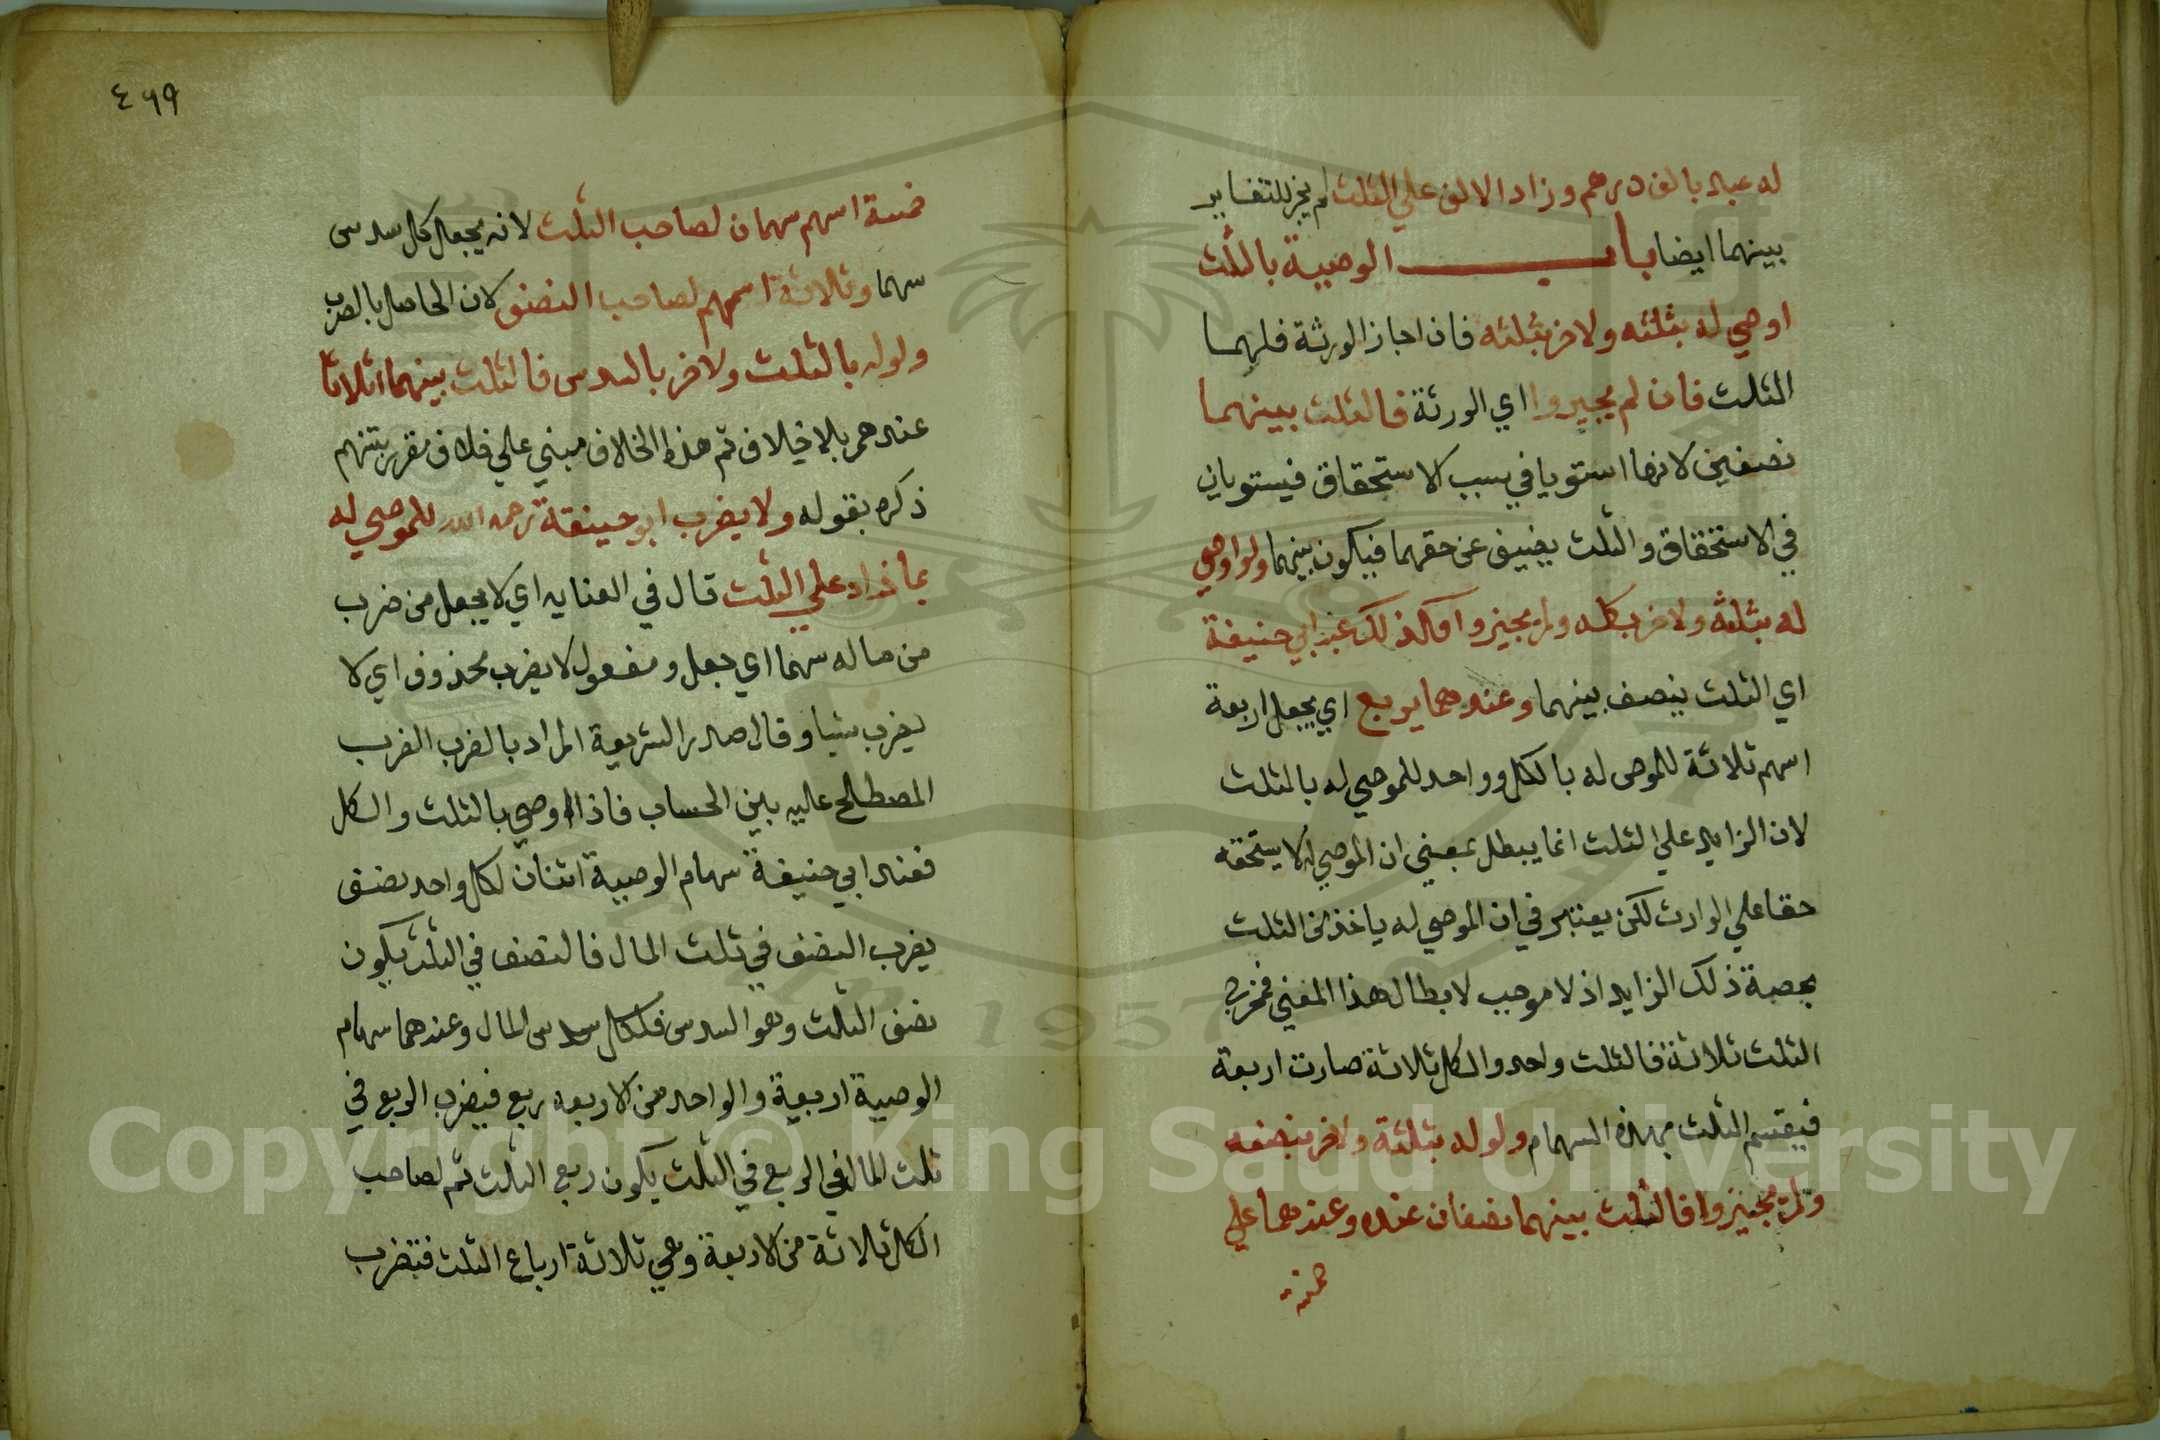 له عبد بالف درهم وزاد الالف علي الثلث لم يجز للتغاير
بينهما ايضا باب الوصية بالثلث
اوصي له بثلثه ولاخر بثلثه فان اجاز الورثة فلهما
الثلث فان لم يجيزوا اي الورثة فالثلث بينهما
نصفين لانهما استويا في سبب الاستحقاق فيستويان
في الاستحقاق والثلث يضيق عن حقهما فيكون بينهما ولو اوصي
له بثلثه ولاخر بكله ولم يجيزوا فكذلك عند ابي حنيفة
اي الثلث ينصف بينهما وعندهما يربع اي يجعل اربعة
اسهم ثلاثة للموصى له بالكل وواحد للموصي له بالثلث
لان الزايد علي الثلث انما يبطل بمعني ان الموصي له لا يستحقه
حقا علي الوارث لكن يعتبر في ان الموصي له ياخذ من الثلث
بحصة ذلك الزايد اذ لا موجب لابطال هذا المعني فمخرج
الثلث ثلاثة فالثلث واحد والكل ثلاثة صارت اربعة
فيقسم الثلث بهذه السهام ولو له بثلثة ولاخر بنصفه
ولم يجيزوا فالثلث بينهما نصفان عنده وعندهما علي
خمسة
٤٦٩
خمسة اسهم سهمان لصاحب الثلث لانه يجعل كل سدس
سهما وثلاثة اسهم لصاحب النصف لان الحاصل بالضرب
ولو له بالثلث ولاخر بالسدس فالثلث بينهما اثلاثا
عندهم بلا خلاف ثم هذا الخلاف مبني علي خلاف مقرر بينهم
ذكره بقوله ولا يضرب ابو حنيفة رحمه الله للموصي له
بما زاد علي الثلث قال في العنايه اي لا يجعل من ضرب
من ماله سهما اي جعل ومفعول لا يضرب محذوف اي لا
يضرب شيا وقال صدر الشريعة المراد بالضرب الضرب
المصطلح عليه بين الحساب فاذا اوصي بالثلث والكل
فعند ابي حنيفة سهام الوصية اثنان لكل واحد نصف
يضرب النصف في ثلث المال فالنصف في الثلث يكون
نصف الثلث وهو السدس فلكل سدس المال وعندهما سهام
الوصية اربعة والواحد من الاربعه ربع فيضرب الربع في
ثلث المال في الربع في الثلث يكون ربع الثلث ثم لصاحب
الكل ثلاثة من الاربعة وهي ثلاثة ارباع الثلث فتضرب
Copyright © King Saud University
1957